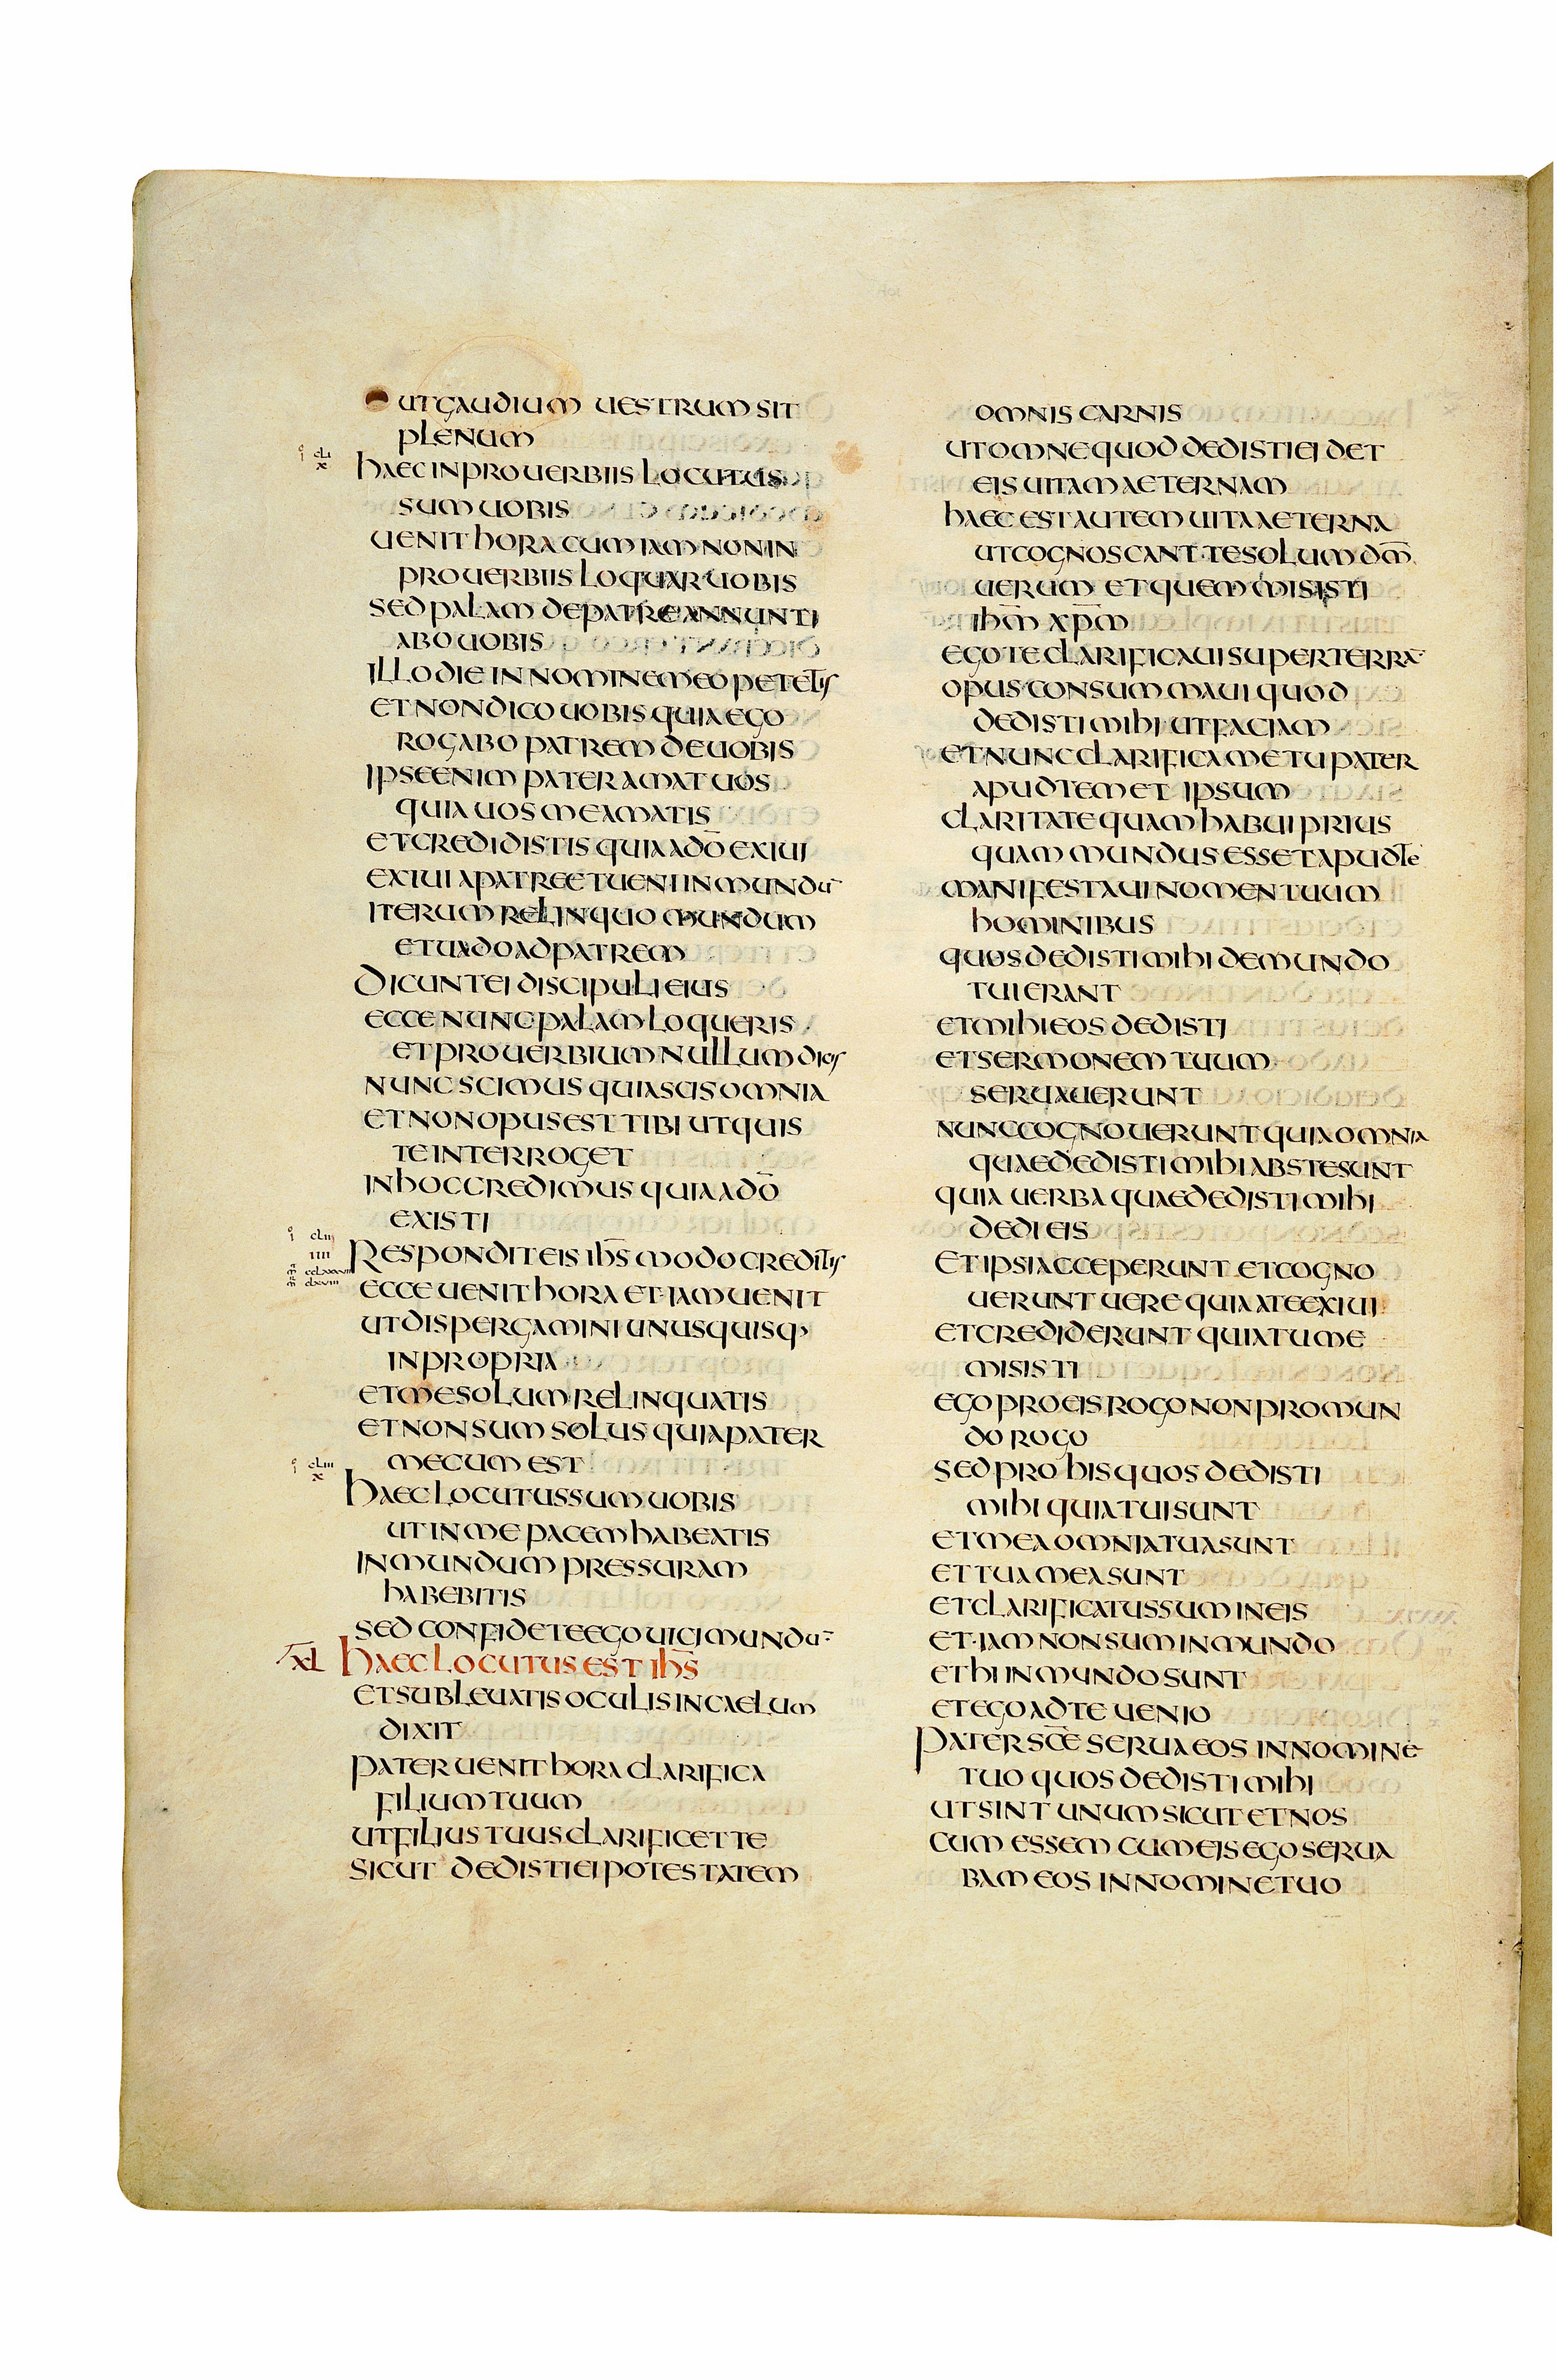 ut gaudium uestrum sit
plenum
i cli
x
haec in prouerbiis locutus
sum uobis
uenit hora cum iam non in
prouerbiis loquar uobis
sed palam de patre annunti
abo uobis
illo die in nomine meo petetis
et non dico uobis quia ego
rogabo patrem de uobis
ipse enim pater amat uos
quia uos me amatis
et credidistis quia a dō exiui
exiui a patre et ueni in mundū
iterum relinquo mundum
et uado ad patrem
Dicunt ei discipuli eius
ecce nunc palam loqueris
et prouerbium nullum dicis
nunc scimus quia scis omnia
et non opus est tibi ut quis
te interroget
in hoc credimus quia a dō
existi
i clii
iiii
Respondit eis ihs̄ modo creditis
ecce uenit hora et iam uenit
ut dispergamini unusquisq,
in propria
et me solum relinquatis
et non sum solus quia pater
mecum est
i cliii
x
haec locutus sum uobis
ut in me pacem habeatis
in mundum pressuram
habebitis
sed confidete ego uici mundū
xl haec locutus est ihs̄
et subleuatis oculis in caelum
dixit
pater uenit hora clarifica
filium tuum
ut filius tuus clarificet te
sicut dedisti ei potestatem
omnis carnis
ut omne quod dedisti ei det
eis uitam aeternam
haec est autem uita aeterna
ut cognoscant te solum dm̄
uerum et quem misisti
ihm̄ xpm̄
ego te clarificaui super terrā
opus consummaui quod
dedisti mihi ut faciam
et nunc clarifica me tu pater
apud temet ipsum
claritate quam habui prius
quam mundus esset apud te
manifestaui nomen tuum
hominibus
quos dedisti mihi de mundo
tui erant
et mihi eos dedisti
et sermonem tuum
seruauerunt
nunc cognouerunt quia omnia
quae dedisti mihi abs te sunt
quia uerba quae dedisti mihi
dedi eis
et ipsi acceperunt et cogno
uerunt uere quia a te exiui
et crediderunt quia tu me
misisti
ego pro eis rogo non pro mun
do rogo
sed pro his quos dedisti
mihi quia tui sunt
et mea omnia tua sunt
et tua mea sunt
et clarificatus sum in eis
et iam non sum in mundo
et hi in mundo sunt
et ego ad te uenio
Pater scē serua eos in nomine
tuo quos dedisti mihi
ut sint unum sicut et nos
cum essem cum eis ego serua
bam eos in nomine tuo